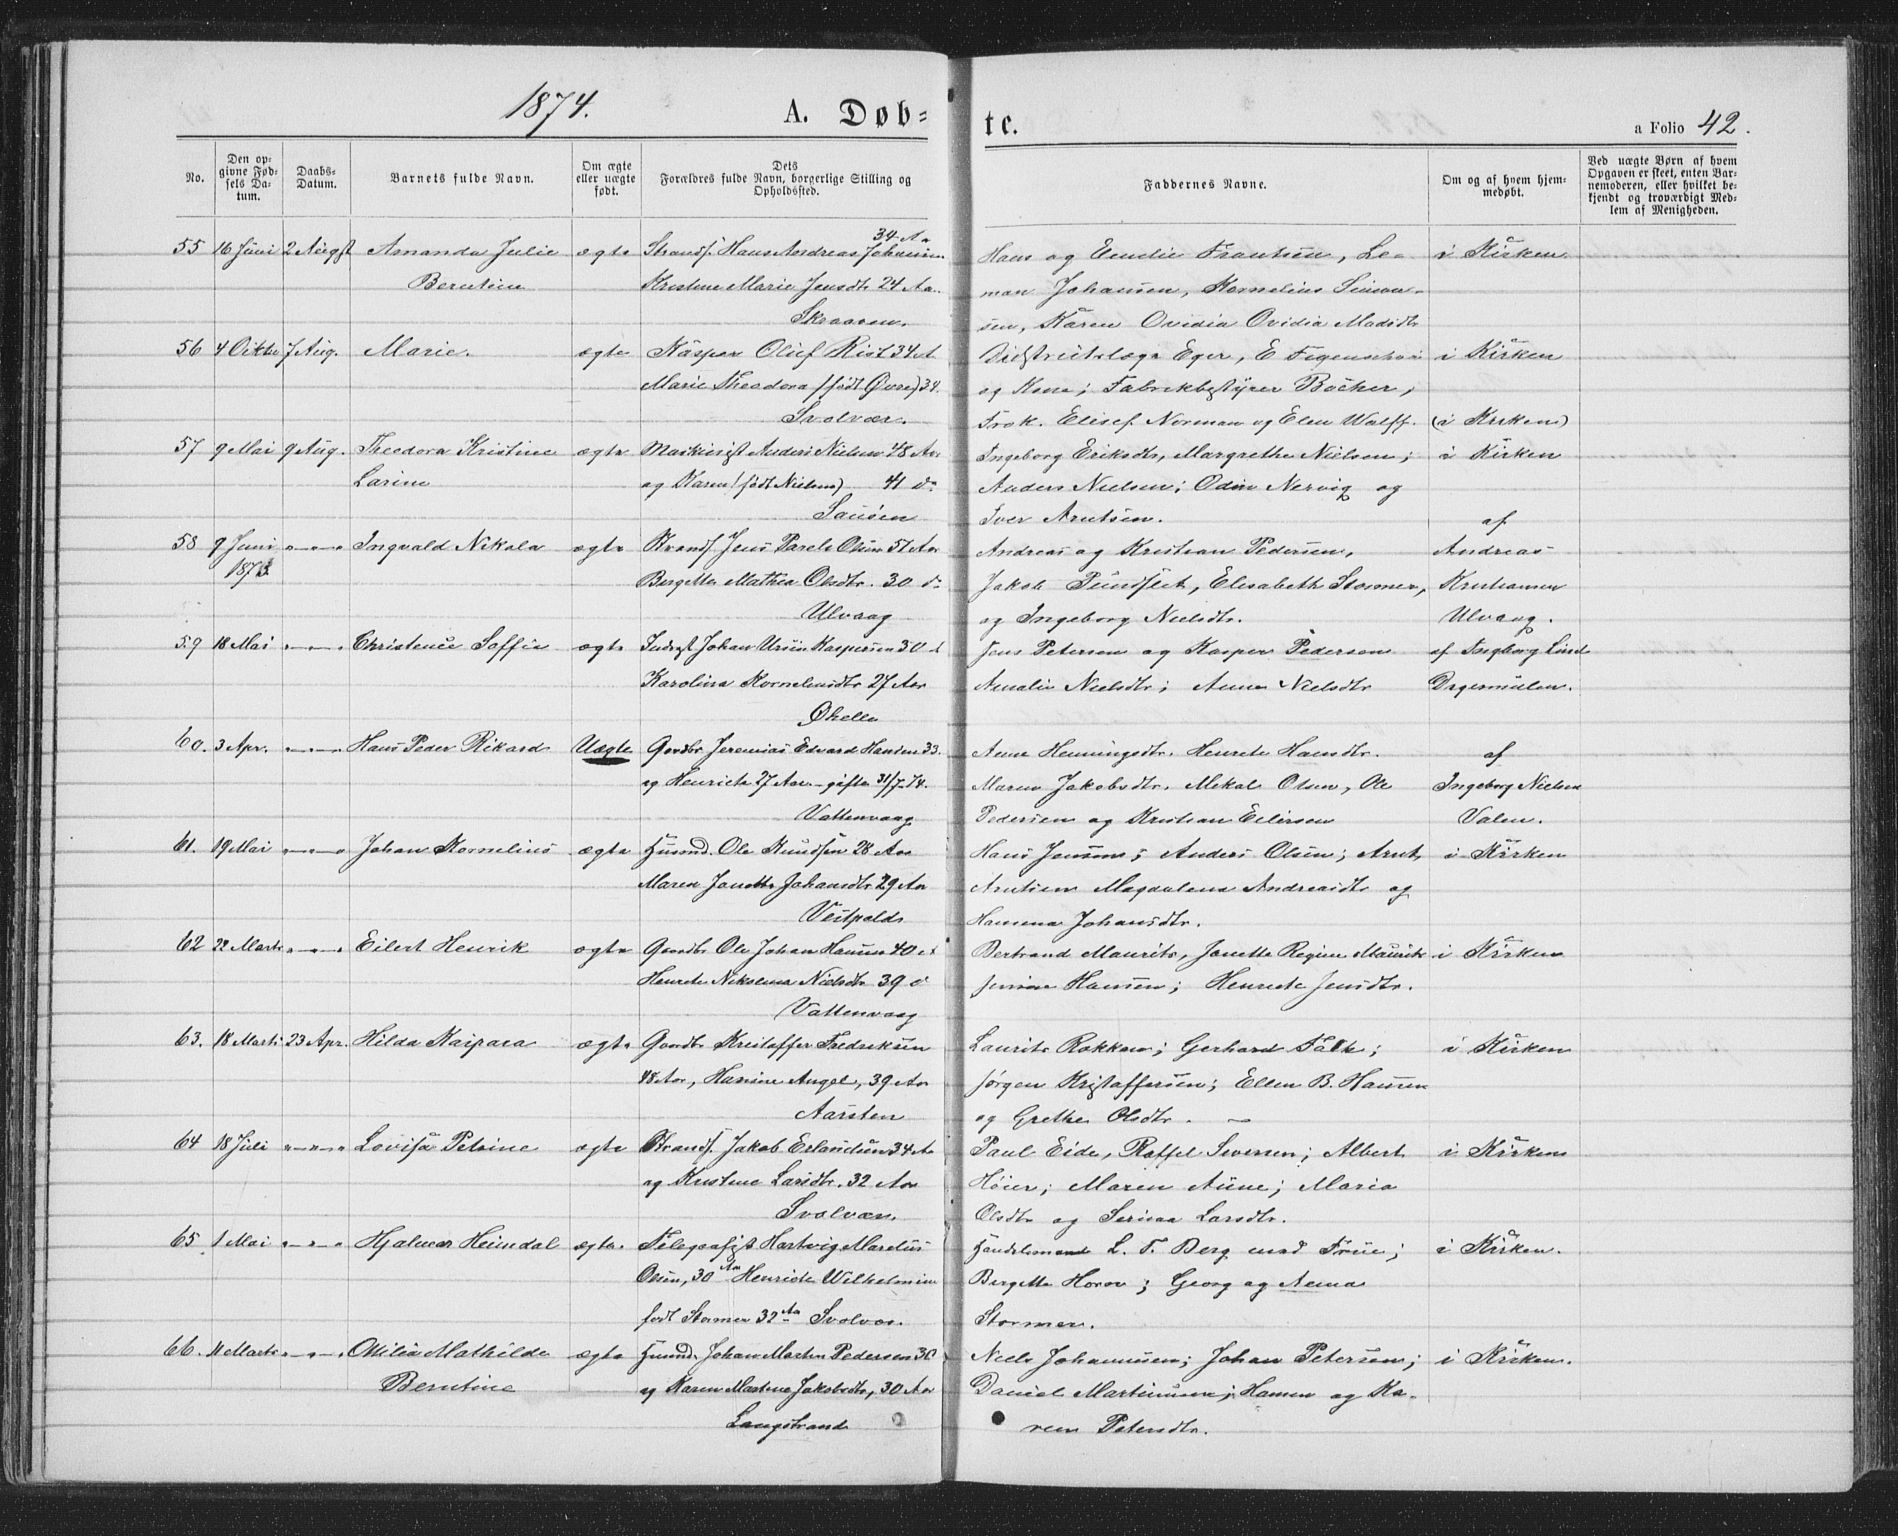 1874.
A. Døb=
te.
a Folio 42.
No.
Den op-
givne Fød-
sels Da-
tum.
Daabs-
Datum.
Barnets fulde Navn.
Om ægte
eller uægte
født.
Dets
Forældres fulde Navn, borgerlige Stilling og
Opholdssted.
Faddernes Navne.
Om og af hvem hjem-
medøbt.
Ved uægte Børn af hvem
Opgaven er skeet, enten Bar-
nemoderen, eller hvilket be-
kjendt og troværdigt Med-
lem af Menigheden.
34 Aa
55 16 Juni 2 Augst Amanda Julie ægte Strands. Hans Andreas Johansen Hans og Emilie Frantsen, Le- i Kirken
Berntine Kristine Marie Jensdtr 24 Aa. man Johansen, Kornelius Simon-
Skraaven. sen, Karen Ovidia Ovidia Madsdtr
56 4 Oktbr 7 Aug. Marie. ægte Kasper Oluf Rist 34 A Distriktslæge Eger, E Figenschou i Kirken
Marie Theodora (født Øvre) 34. og Kone; Fabrikbestyrer Bocher,
Svolvær. Frøk. Elisef Norman og Elen Wolff. (i Kirken)
57 9 Mai 9 Aug. Theodora Kristine ægte Maskinist Anders Nielsen 48 Aar Ingeborg Eriksdtr, Margrethe Nielsen; i Kirken
Larine og Karen (født Nielsen) 41 do Anders Nielsen; Odin Nervig og
Iver Arntsen. af
58 9 Juni " " " Ingvald Nikolai ægte Strands. Jens Parele Olsen 51 Aar Andreas og Kristian Pedersen, Andreas
1873 Bergette Mathea Olsdtr. 30 do Jakob Pundsleit, Elisabeth Stormer, Kristiansen
Ulvaag og Ingeborg Nielsdtr. Ulvaag.
59 18 Mai " " " Christence Soffie ægte Inderst Johan Ursin Kaspersen 30 A Jens Petersen og Kasper Pedersen af Ingborg Lind
Karoline Korneliusdtr 27 Aar Amalie Nielsdtr; Anne Nielsdtr Digermulen.
Øhelle
60. 3 Apr. " " " Hans Peder Rikard Uægte Gaardbr Jeremias Edvard Hansen 33. Anne Henningsdtr. Henrete Hansdtr. af
og Henriete 27 Aar - gifte 31/7-74. Maren Jakobsdtr. Mekal Olsen, Ole Ingeborg Nielsen
Vattenvaag Pedersen og Kristian Eilersen Valen.
61. 19 Mai " " " Johan Kornelius ægte Husmd. Ole Knudsen 28 Aar Hans Jensen; Anders Olsen; Arnt i Kirken
Maren Janette Johansdtr 29 Aar Arntsen Magdalena Andreasdtr og
Vestpolds Hansena Johansdtr.
62 22 Marts " " " Eilert Henrik ægte Gaardbr Ole Johan Hansen 40 A Bertrand Maurits, Janette Regine Maurits i Kirken
Henrete Nikoline Nielsdtr 39 A Hansen; Henrete Jensdtr.
Vattenvaag
63. 18 Marts 23 Apr. Hilda Kaspara ægte Gaardbr Kristoffer Fredriksen Laurits Rokkan; Gerhard Falk; i Kirken
48 Aar, Hansine Angel, 39 Aar Jørgen Kristoffersen; Ellen B. Hansen
Aarsten og Grethe Olsdtr. —
64 18 Juli " " " Lovise Petrine ægte Strands. Jakob Erlandsen 34 Aa Paul Eide, Raffel Siversen; Albert i Kirken
og Kristine Larsdtr. 32 Aar Høier; Maren Aune; Maria
Svolvær. Olsdtr og Serinaa Larsdtr.
65 1 Mai " " " Hjalmar Heimdal ægte. Telegrafist Hartvig Marelius Handelsmand L. T. Berg med Frue; i Kirken.
Olsen, 30 Aa Henriete Wilhelmine Bergette Horov; Georg og Anna
født Stormer 32 Aa Svolvær. Stormer.
66. 11 Marts " " " Otilie Mathilde ægte Husmd. Johan Martin Pedersen 30 Niels Johannesen; Johan Petersen; i Kirken.
Berntine og Karen Martine Jakobsdtr, 30 Aar Daniel Martinusen; Hansen og Ka-
Langstrand ren Petersdtr.